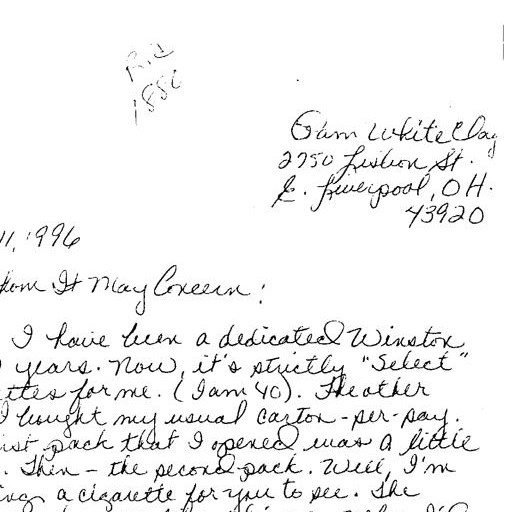 R.d
1886
Pam White Clay
2750 Lisbon St.
E. Liverpool, OH.
43920
11, 1996
hom It May Concern:
I have been a dedicated Winston
years. Now, it's strictly "Select"
ttes for me. (I am 40). The other
I bought my usual carton-per-pay.
irst pack that I opened was a little
. Then - the second pack. Well, I'm
ing a cigarette for you to see. The